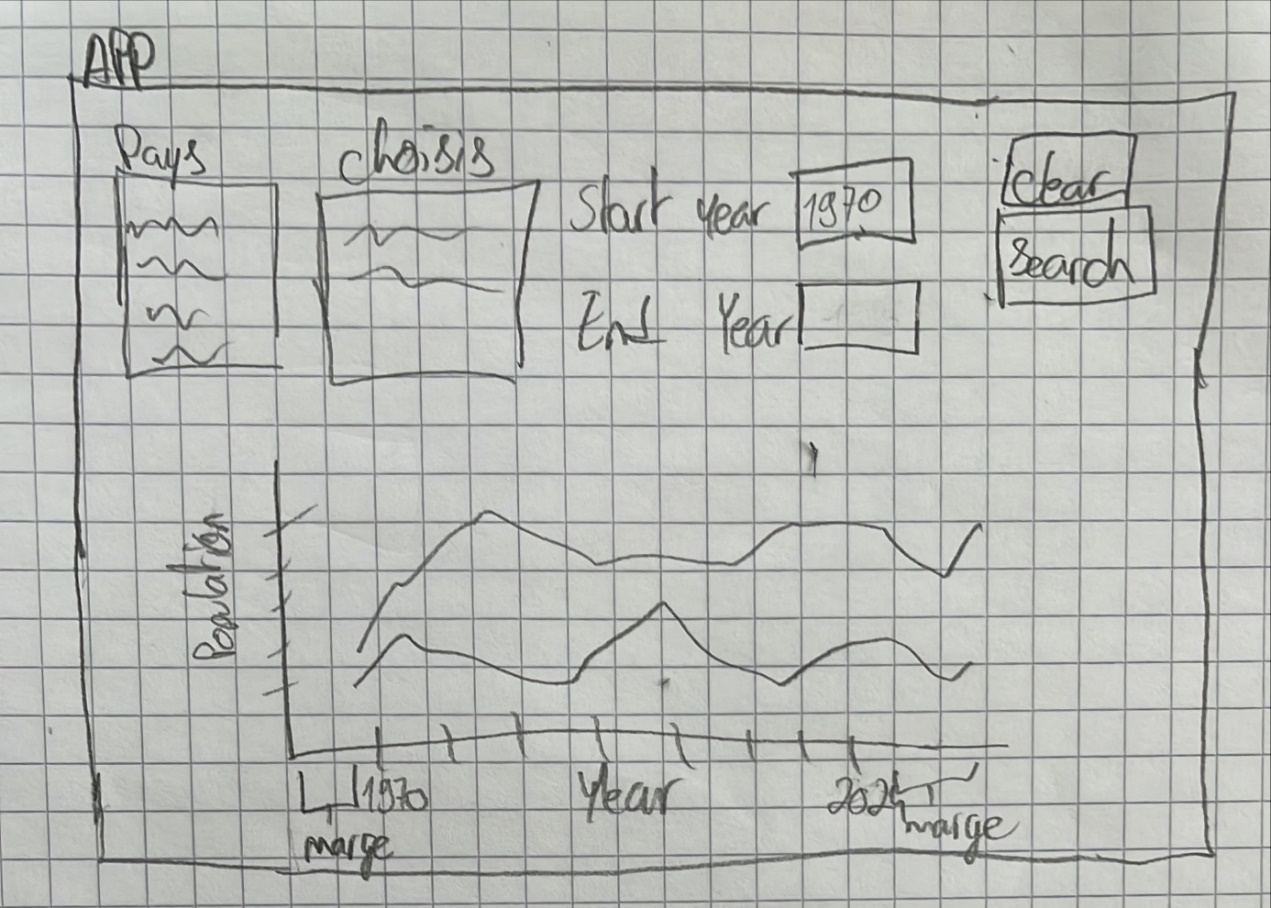 APP
Pays
choisis
Start year 1970
End Year
clear
Search
Population
1970
Year
2024
marge
marge